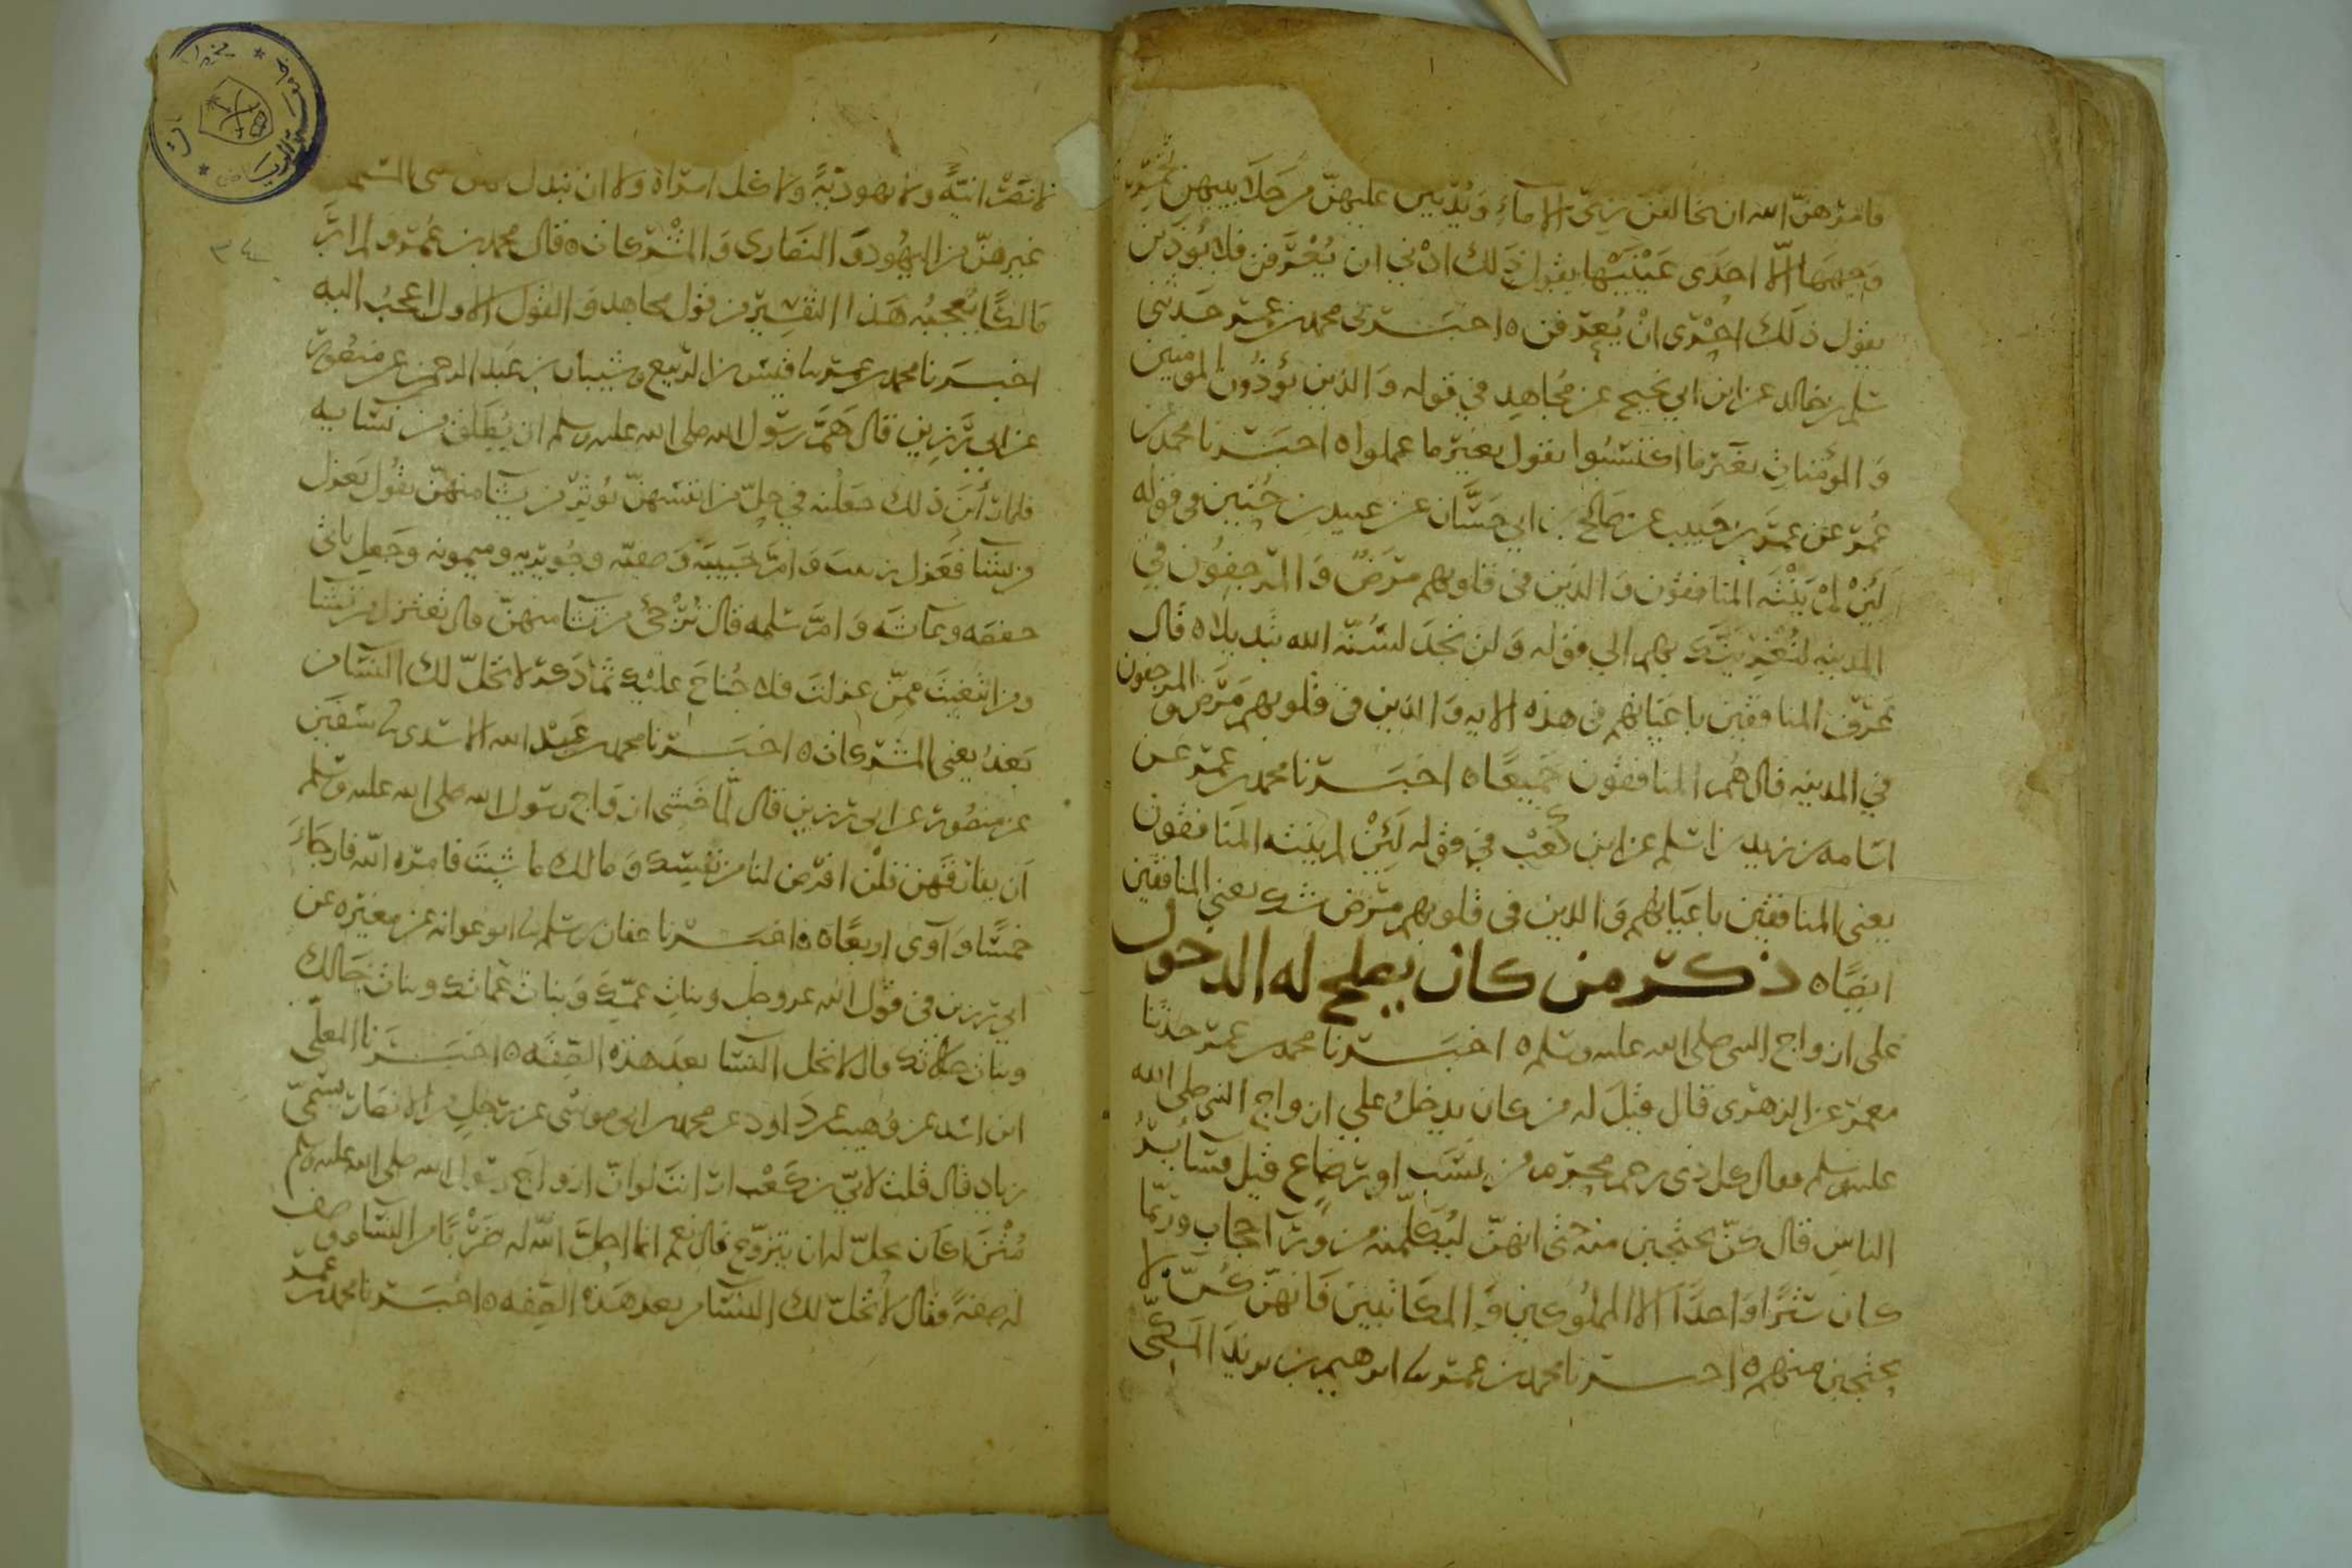 فامرهنّ الله ان يخالفن زيّ الاماء ويدنين عليهنّ من جلابيبهن تخمّر
وجهها الّا احدى عينيها يقول ذلك ادني ان يُعْرَفن فلا يُوذَين
يقول ذلك احرى انْ يُعرفن ه اخبرني محمد بن عمر حدثني
سلم بن خالد عن ابن ابي نجيح عن مجاهد في قوله والذين يؤذون المومنين
والمؤمنات بغير ما اكتسبوا يقول بغير ما عملوا ه اخبرنا محمد بن
عمر عن عمر بن حبيب عن صالح بن ابي حسّان عن عبيد بن حنين في قوله
لئن لم ينته المنافقون والذين في قلوبهم مرض والمرجفون في
المدينه لنغرينك بهم الي قوله ولن تجد لسنّة الله تبديلا ه قال
عرّف المنافقين باعيانهم في هذه الايه والذين في قلوبهم مرض والمرجفون
في المدينه قال هُم المنافقون جميعًا ه اخبرنا محمد بن عمر عن
اسامه بن زيد بن اسلم عن ابن كعب في قوله لئن لم ينته المنافقون
يعني المنافقين باعيانهم والذين في قلوبهم مرض شك يعني المنافقين
ايضًا ه ذكر من كان يصلح له الدخول
على ازواج النبي صلى الله عليه وسلم ه اخبرنا محمد بن عمر حدثنا
معمر عن الزهري قال قيل له من كان يدخل علي ازواج النبي صلى الله
عليه وسلم فقال كل ذي رحم محرم من نسب او رضاع قيل فسائر
الناس قال كنّ يحتجبن منه حتى انهنّ ليكلّمنه من ورآ حجاب وربّما
كان سترًا واحدًا الا المملوكين والمكاتبين فانهنّ كنّ لا
يحتجبن منهم ه اخبرنا محمد بن عمر نا ابرهيم بن يزيد المكّي
لا نصرانيّةً ولا يهوديّةً ولا ان تبدل
غيرهنّ من اليهود والنصارى والمشركات ه قال محمد بن عمر ولم ار
مالكًا يعجبه هذا التفسير من قول مجاهد والقول الاول اعجبُ اليه
اخبرنا محمد بن عمر نا قيس بن الربيع وشيبان بن عبد الرحمن عن منصور
عن ابي رزين قال همّ رسول الله صلى الله عليه وسلم ان يُطلّق من نسايه
فلما رأين ذلك جعلنه في حِلّ من انفسهنّ يُوثر من يشا منهنّ يقول يعزل
من يشا فعزل زينب وامّ حبيبه وصفيّه وجُويريه وميمونه وجعل ياتي
حفصه وعائشه وامّ سلمه قال تُرْجئ من تشا منهنّ قال تعتزل من تشا
ومن ابتغيت ممّن عزلت فلا جُناح عليك ثم ذكر لا تحلّ لك النسآ من
بعدُ يعني المشركات ه اخبرنا محمد بن عبد الله الاسدي نا سفين
عن منصور عن ابي رزين قال لمّا خشي ازواج رسول الله صلى الله عليه وسلم
ان يفارقهن قلن افرض لنا من نفسك ومالك ما شيت فامره الله فارجاء
خمسًا وآوى اربعًا ه اخبرنا عفان بن مسلم نا ابو عوانه عن مغيره عن
ابي رزين في قول الله عز وجل وبنات عمّك وبنات عماتك وبنات خالك
وبنات خالاتك قال لا تحل النسا بعد هذه الصفه ه اخبرنا المعلّى
ابن اسد عن وُهيب عن داود عن محمد بن ابي موسى عن رجل من الانصار يسمّى
زياد قال قلت لابيّ بن كعب ارايت لو انّ ازواج رسول الله صلى الله عليه وسلم
مُتْنَ اكان يحلّ له ان يتزوّج قال نعم انما احلّ الله له ضَرْبًا من النسا ووصف
له صفةً فقال لا تحلّ لك النسآ من بعد هذه الصفه ه اخبرنا محمد بن عمر
٣٤